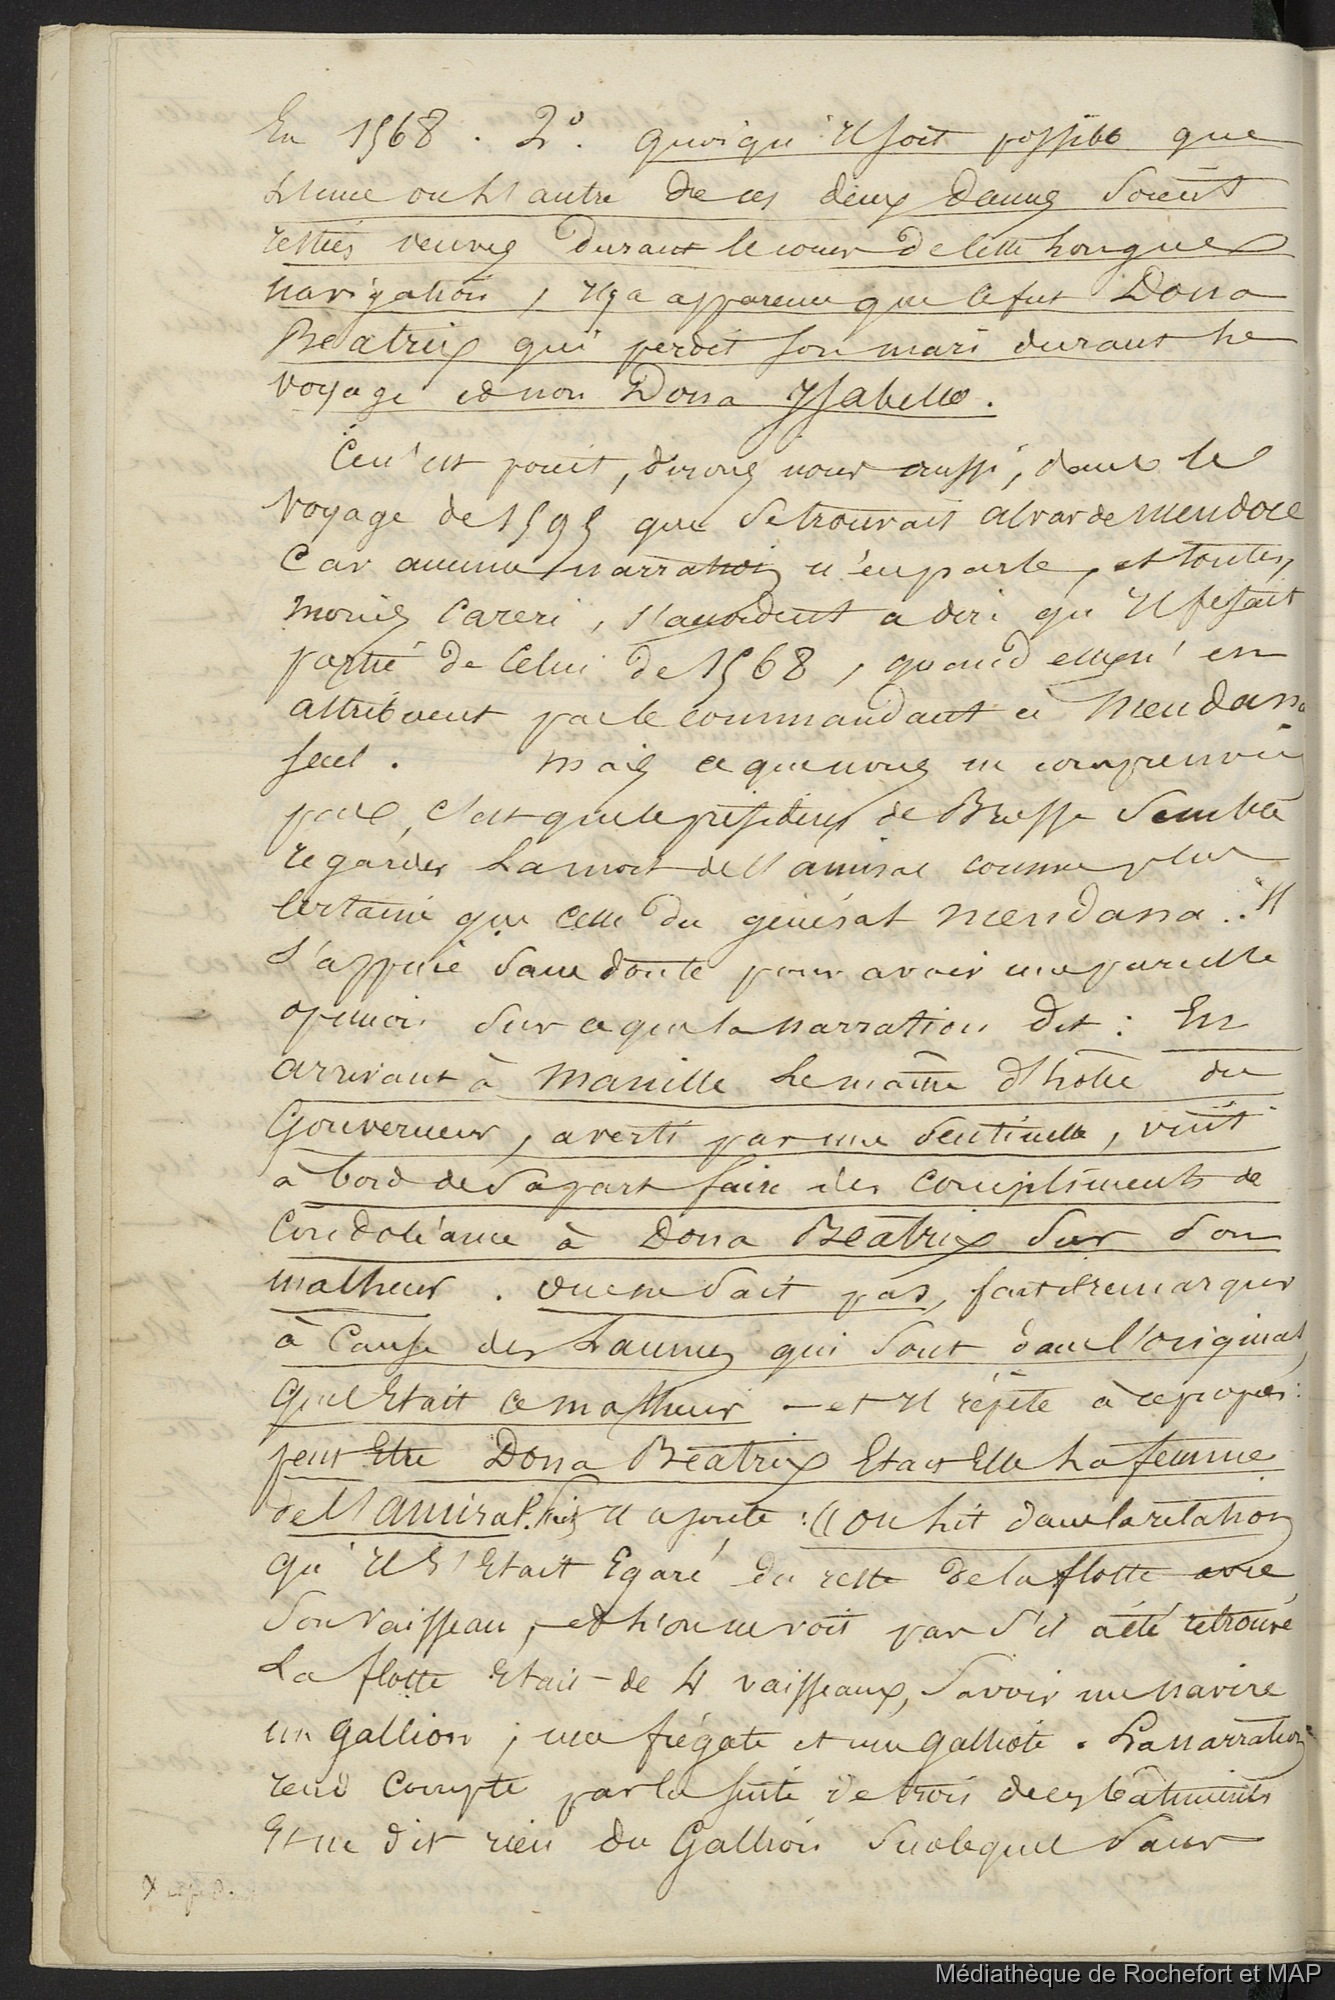 En 1568. 2°. quoiqu'il soit possible que
L'une ou L'autre de ces deux Dames Soient
restées veuves Durant le cours de cette Longue
navigation, il y a apparence que ce fut Dona
Beatrix qui perdit son mari durant Le
voyage et non Dona Ysabelle.
Ce n'est point, dirons nous aussi, dans le
Voyage de 1595 que se trouvait alvar de Mendoce
Car aucune narration n'en parle, et toutes,
moins Careri, s'accordent a dire qu'il fesait
partie de Celui de 1568, quand elles n'en
attribuent pas le commandant à Mendana
seul. Mais ce que nous ne comprenons
pas, c'est que le président de Brosse Semble
regarder La mort de l'amiral comme plus
Certaine que celle du général Mendana.. Il
S'appuie Sans doute pour avoir une pareille
opinion Sur ce que la narration dit: En
arrivant à Manille Le maître d'hotel du
Gouverneur, averti par une Sentinelle, vint
à bord de Sa part faire des Compliments de
Condoléance à Dona Beatrix Sur Son
malheur. on ne Sait pas, fait il remarquer
à Cause des Lacunes qui Sont dans l'original,
quel Etait ce malheur - et il répète à ce propos:
peut Etre Dona Beatrix Etait Elle La femme
de L'amiral. Puis il ajoute: (( on Lit dans la relation
qu'il S'Etait Egaré du reste de la flotte avec
Son Vaisseau, et L'on ne voit pas S'il a été retrouvé
La flotte Etait de 4 vaisseaux, Savoir un navire
un gallion, une frégate et une galliote. La narration
rend Compte par la suite de trois de ces bâtiments
Et ne dit rien du Gallion Sur lequel Sans